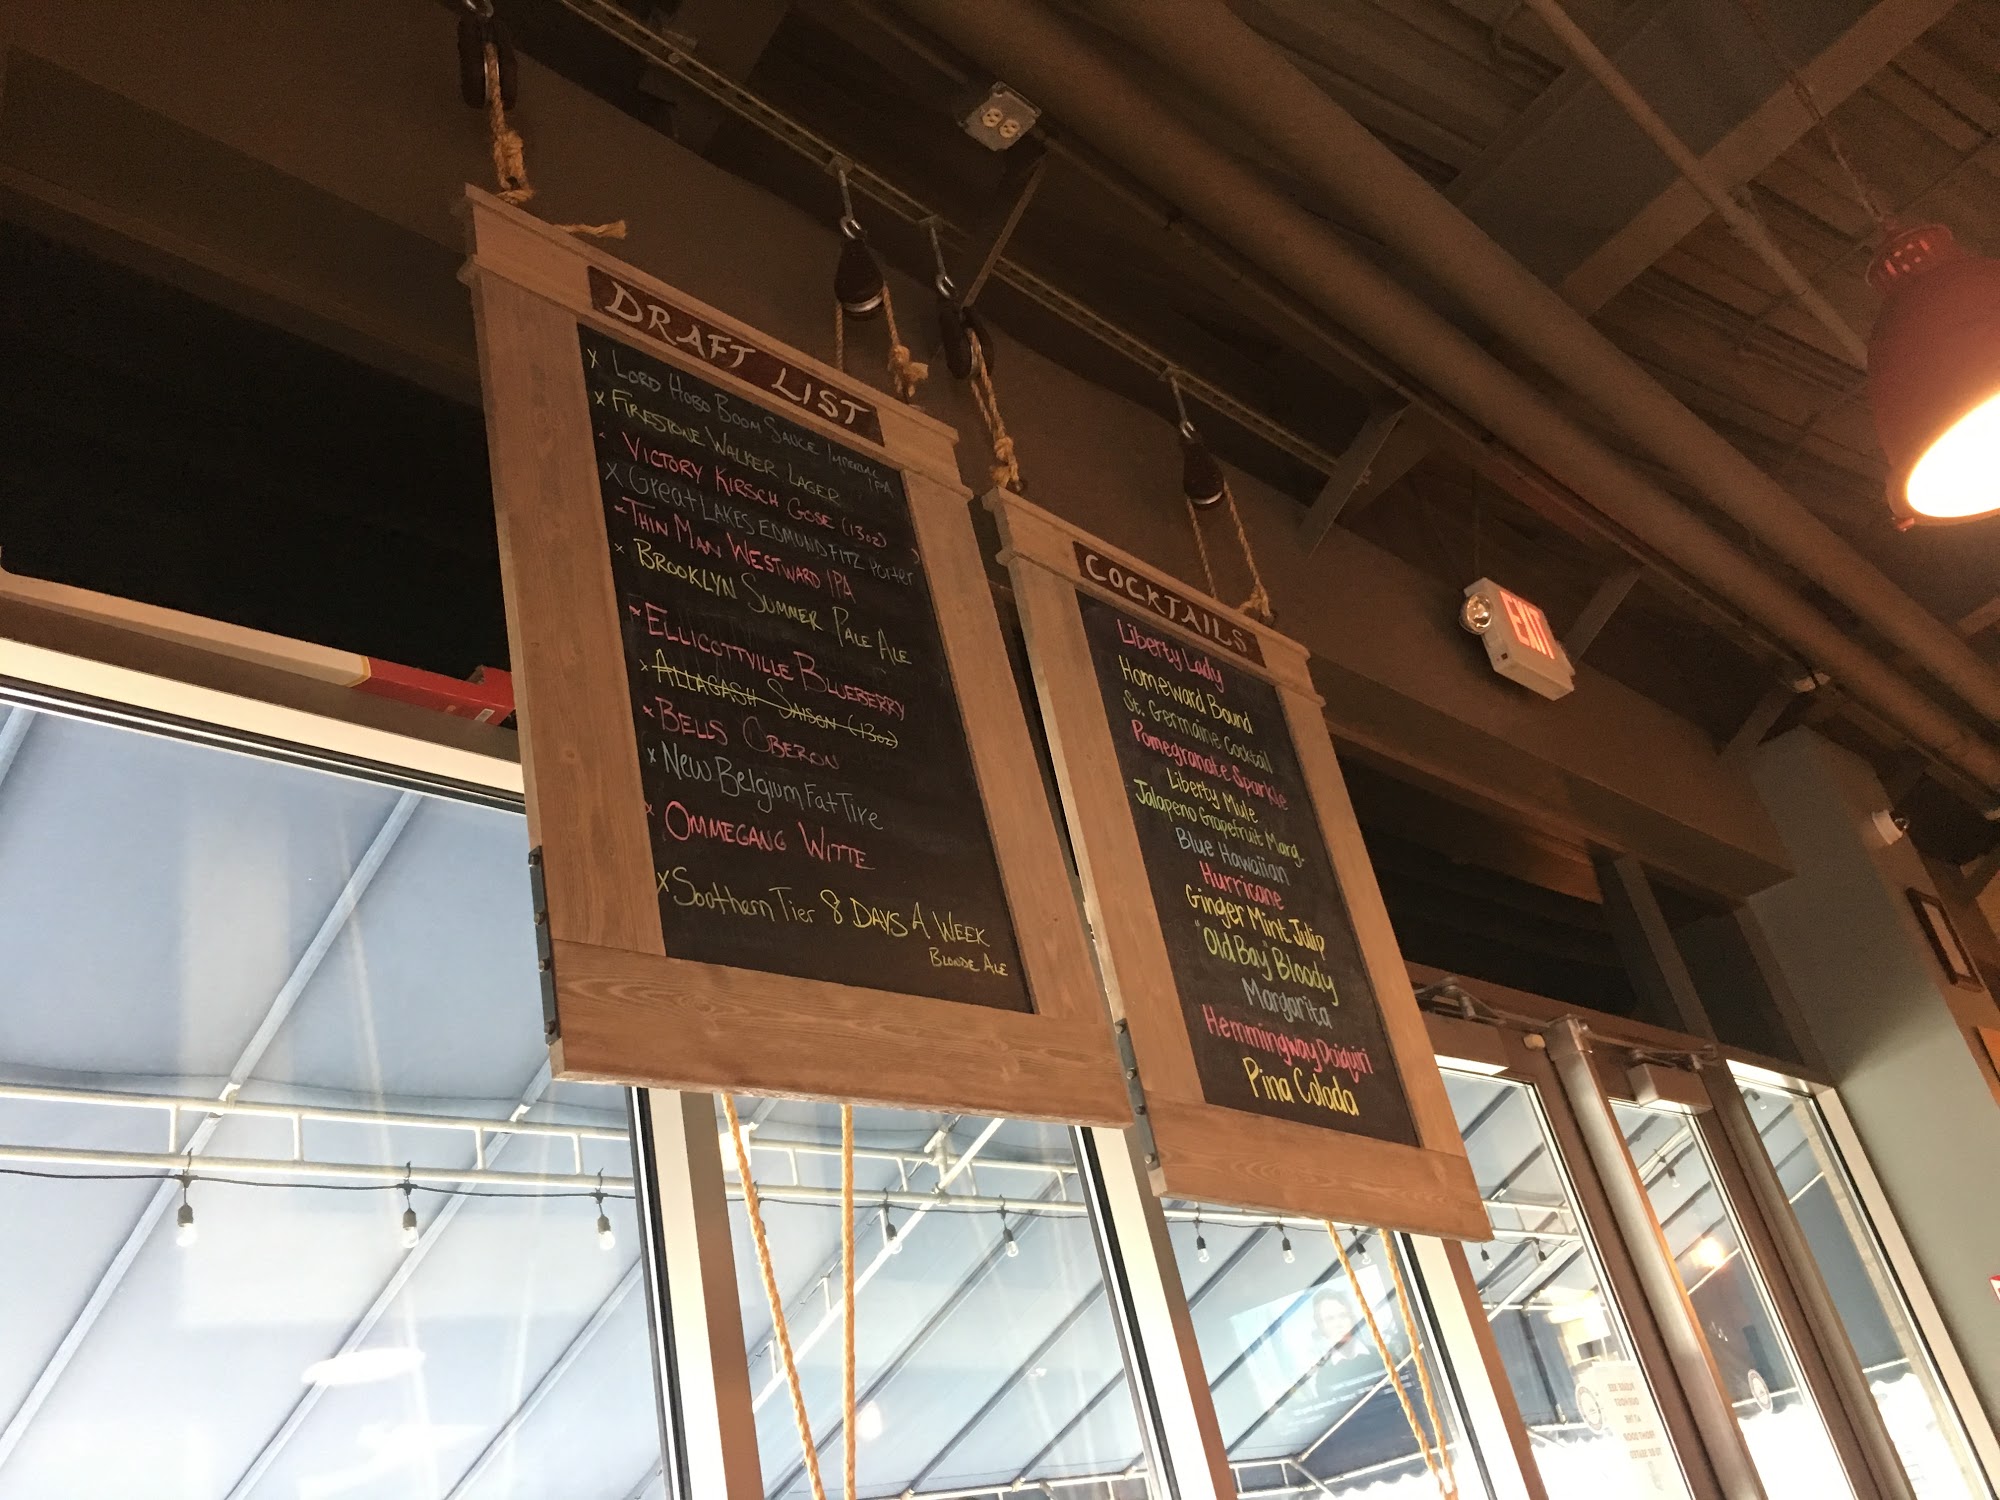 DRAFT LIST
x LORD HOBO BOOM SAUCE IMPERIAL
IPA
x FIRESTONE WALKER LAGER
VICTORY KIRSCH GOSE (13oz)
X Great LAKES EDMUND FITZ Porter
x THIN MAN WESTWARD IPA
x BROOKLYN SUMMER PALE ALE
x ELLICOTTVILLE BLUEBERRY
x ALLAGASH SAISON (13oz)
x BELLS OBERON
x New Belgium Fat Tire
x OMMEGANG WITTE
x Soothern Tier 8 DAYS A WEEK
BLONDE ALE
COCKTAILS
Liberty Lady
Homeward Bound
St. Germaine Cocktail
Pomegranate Sparkle
Liberty Mule
Jalapeno Grapefruit Marg.
Blue Hawaiian
Hurricane
Ginger Mint Julip
"Old Bay" Bloody
Margarita
Hemmingway Daiquiri
Pina Colada
EXIT